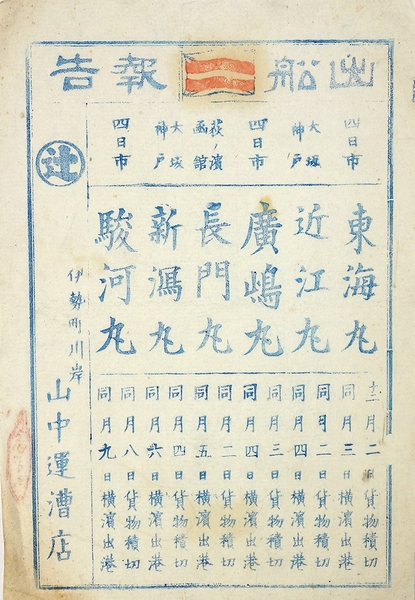 出船報告
四日市
大坂
神戸
四日市
荻ノ濱
函館
大坂
神戸
四日市
東海丸
近江丸
廣嶋丸
長門丸
新瀉丸
駿河丸
十二月二日貨物積切
同月三日横濱出港
同月二日貨物積切
同月四日横濱出港
同月三日貨物積切
同月四日横濱出港
同月二日貨物積切
同月五日横濱出港
同月四日貨物積切
同月六日横濱出港
同月八日貨物積切
同月九日横濱出港
辻
伊勢町川岸
山中運漕店